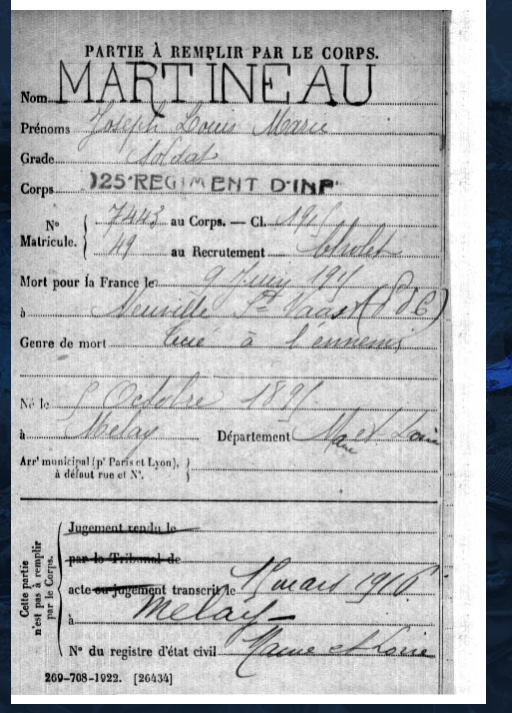 PARTIE À REMPLIR PAR LE CORPS.
Nom MARTINEAU
Prénoms Joseph Louis Marie
Grade Soldat
Corps 125 REGIMENT D'INF
N° Matricule. { 7443 au Corps. — Cl. 1915
49 au Recrutement Cholet
Mort pour la France le 9 Juin 1915
à Neuville St Vaast (P d C)
Genre de mort Tué à l'ennemi
Né le 5 Octobre 1895
à Melay Département Maine et Loire
Arr' municipal (p' Paris et Lyon), }
à défaut rue et N°.
Cette partie n'est pas à remplir par le Corps.
Jugement rendu le
par le Tribunal de
acte ou jugement transcrit le mars 1916
à Melay
N° du registre d'état civil Maine et Loire
269-708-1922. [26434]